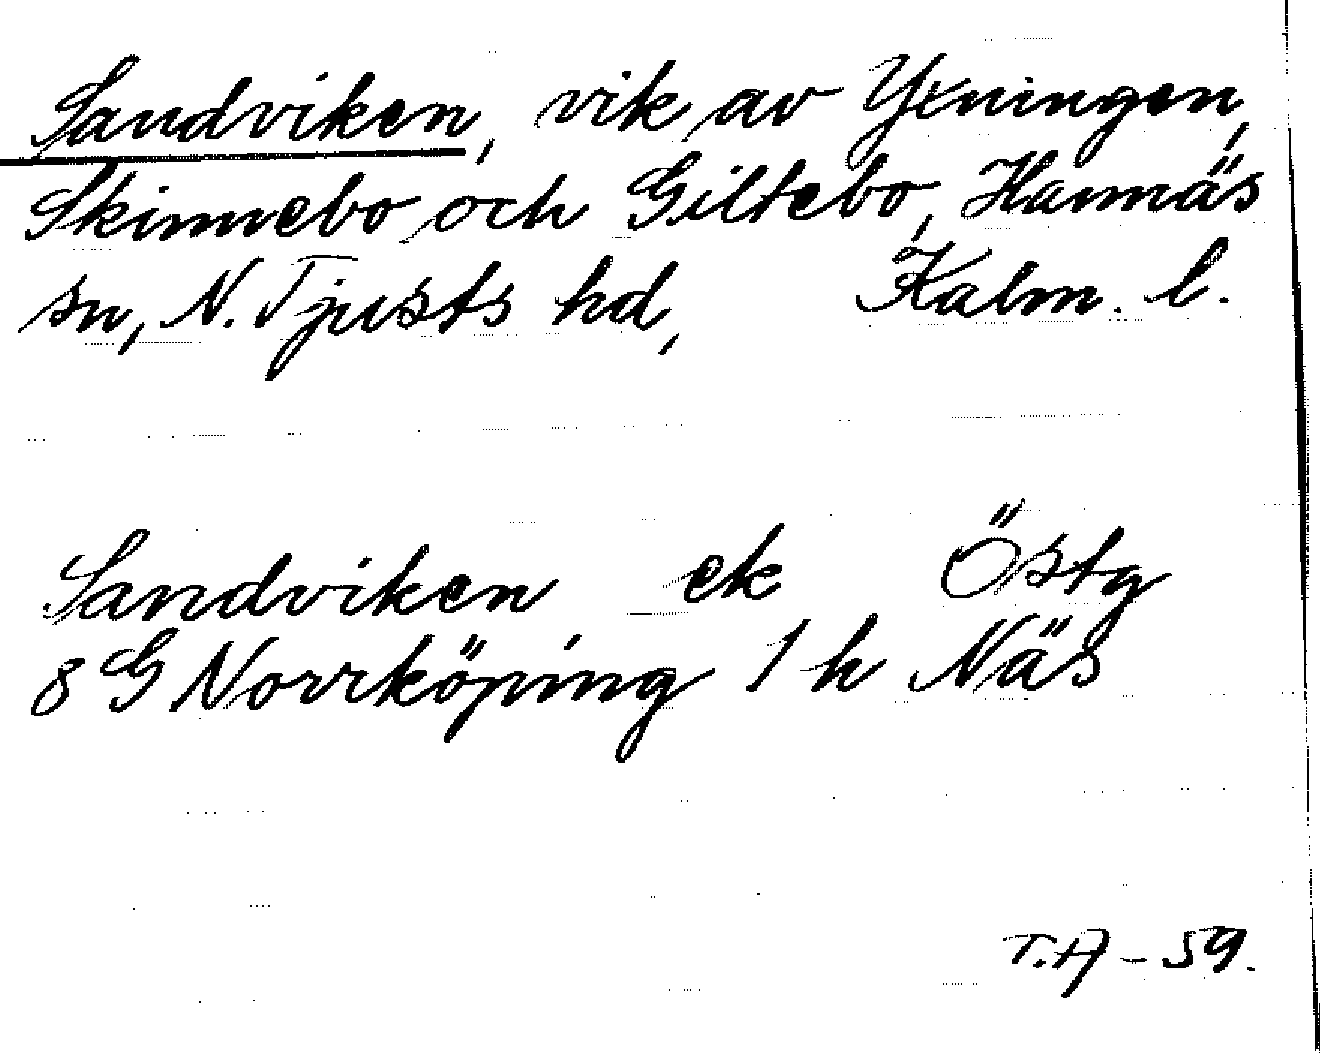 Sandviken, vik av Yxningen,
Skinnebo och Giltebo, Hannäs
sn, N. Tjusts hd, Kalm. l.
Sandviken ek Östg
8 G Norrköping 1 h Näs
T.A - 59.